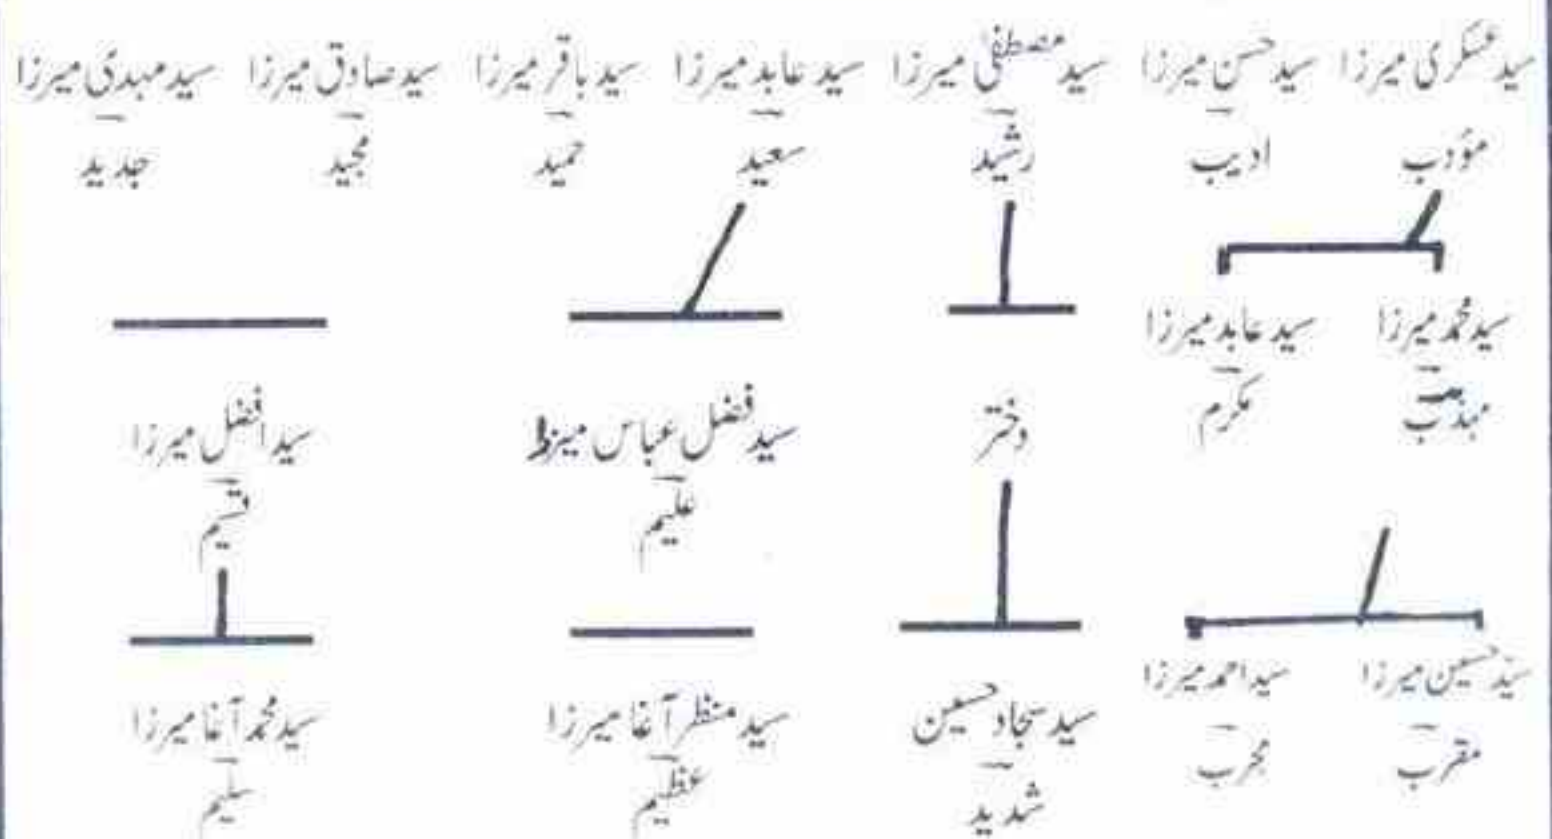 سید عسکری میرزا سید حسن میرزا سید مصطفیٰ میرزا سید عابد میرزا سید باقر میرزا سید صادق میرزا سید مہدی میرزا
مؤدب ادیب رشید سعید حمید مجید جدید
سید محمد میرزا سید عابد میرزا
مہذب مکرم
دختر سید فضل عباس میرزا سید افضل میرزا
علیم قسیم
سید حسین میرزا سید احمد میرزا
مقرب مجرب
سید سجاد حسین سید منظر آغا میرزا سید محمد آغا میرزا
شدید عظیم سلیم